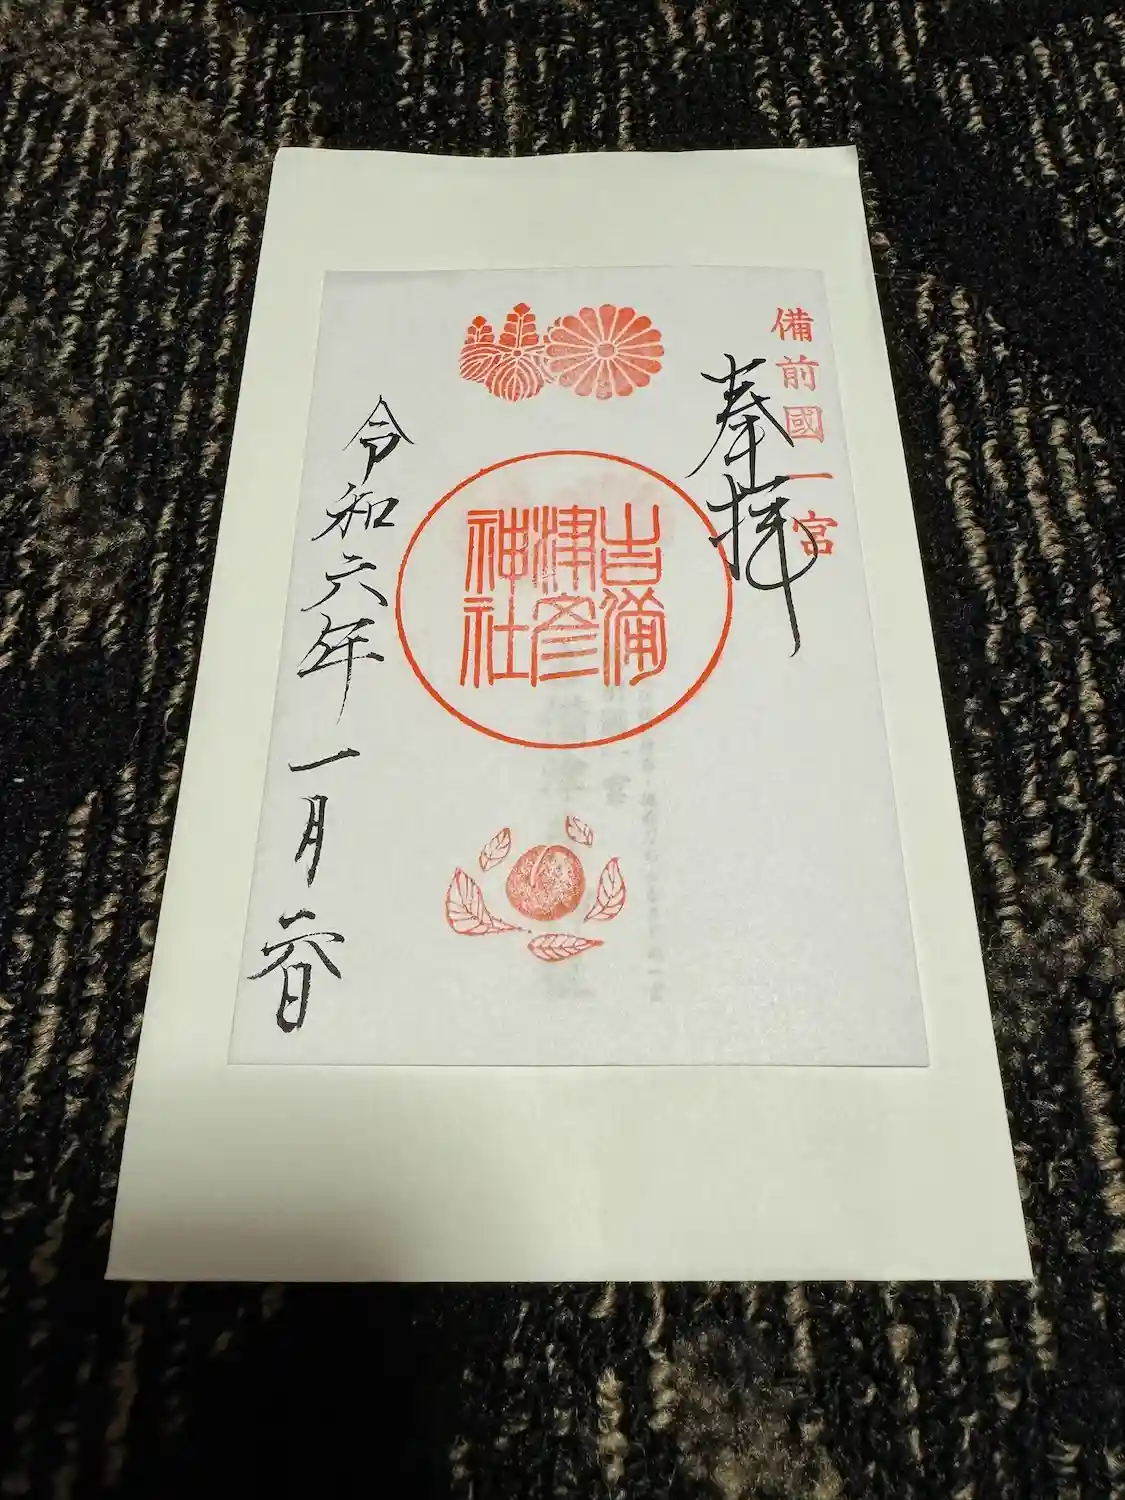 備前國一宮
奉拝
吉備
津彦
神社
令和六年一月日